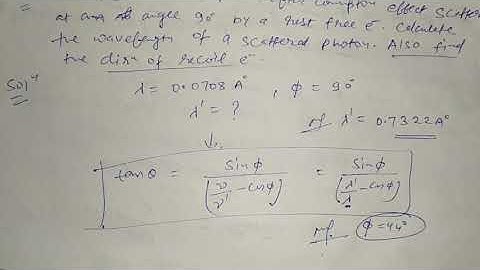 after compton effect scatter
at an angle 90° by a rest free e⁻. calculate
the wavelength of a scattered photon. Also find
the dirⁿ of recoil e⁻.
Solⁿ λ = 0.0708 A° , ϕ = 90°
λ' = ? λ' = 0.7322A°
tanθ = sinϕ / (ν/ν' - cosϕ) = sinϕ / (λ'/λ - cosϕ)
ϕ = 44°